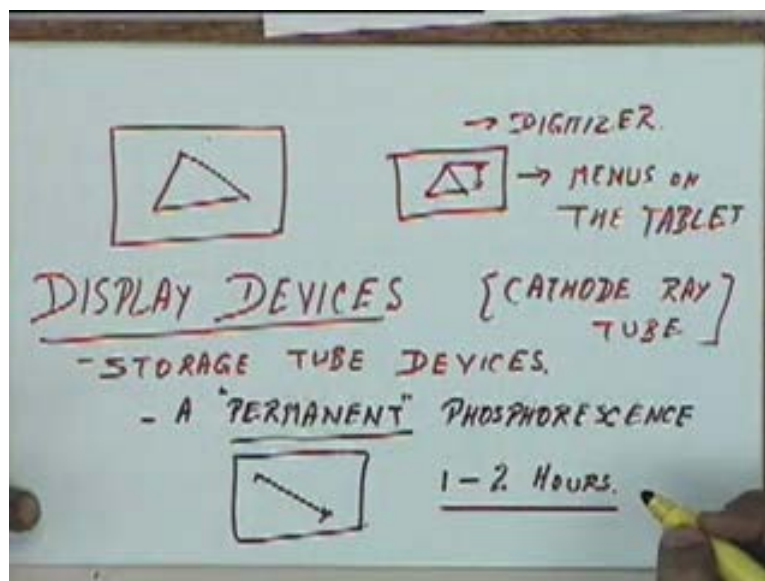 → DIGITIZER.
→ MENUS ON
THE TABLET
DISPLAY DEVICES [CATHODE RAY
TUBE]
- STORAGE TUBE DEVICES.
- A "PERMANENT" PHOSPHORESCENCE
1 - 2 HOURS.